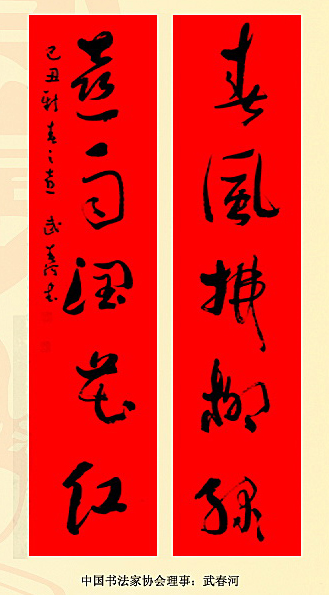 春風拂柳绿
喜雨潤花红
己丑新春之 武春河书
中国书法家协会理事：武春河